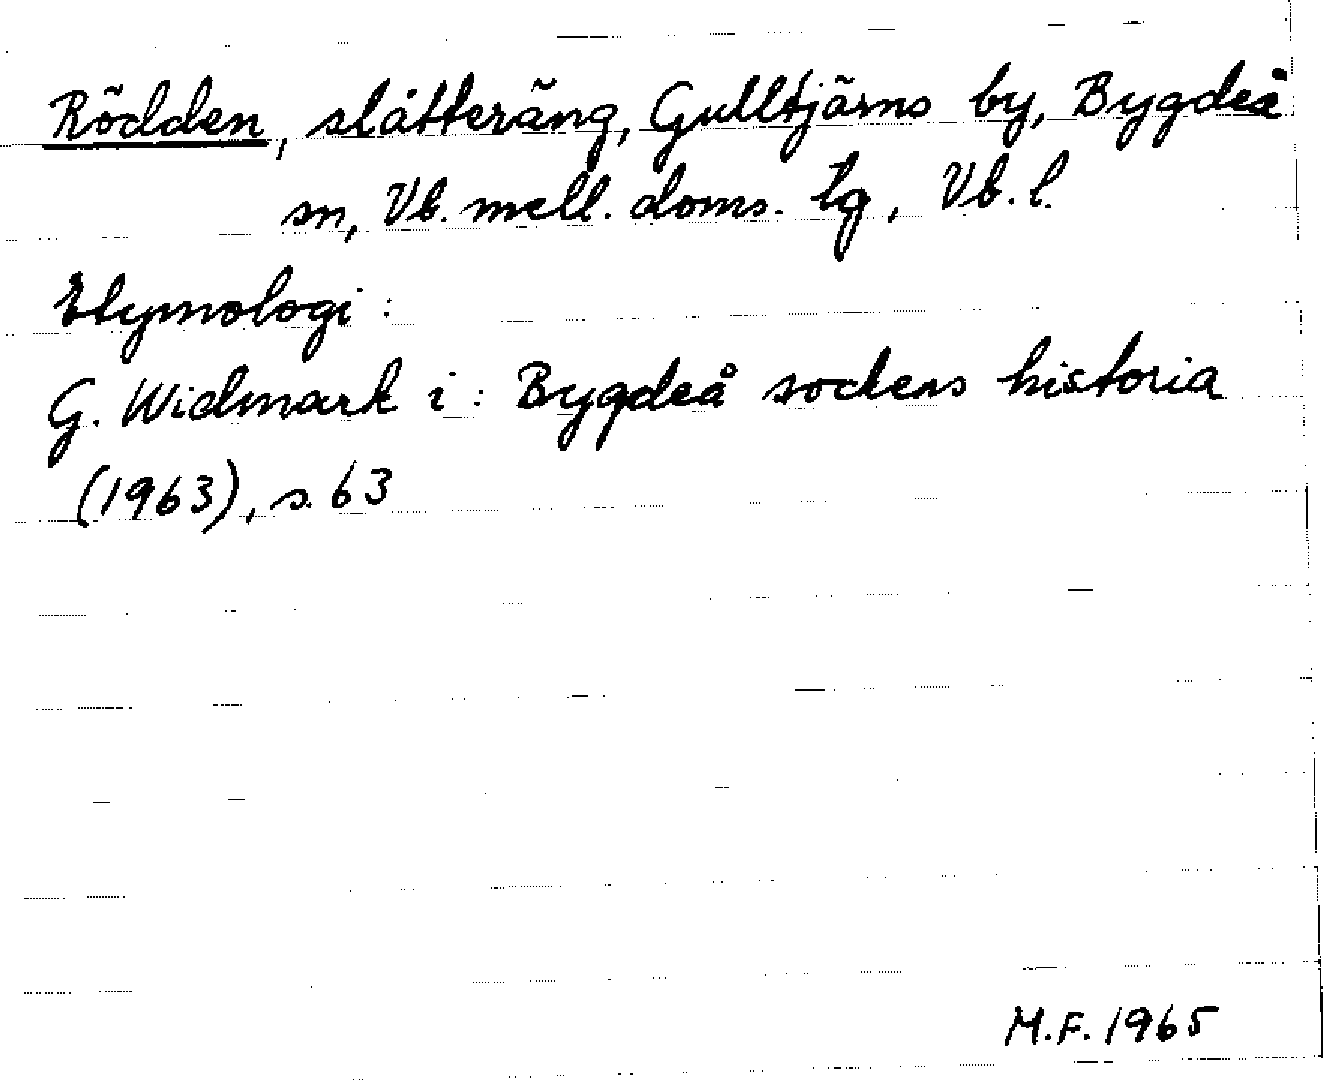 Rödden, slåtteräng, Gulltjärns by, Bygdeå
sn, Vb. mell. doms. tg, Vb. l.
Etymologi:
G. Widmark i: Bygdeå sockens historia
(1963), s. 63
M.F. 1965